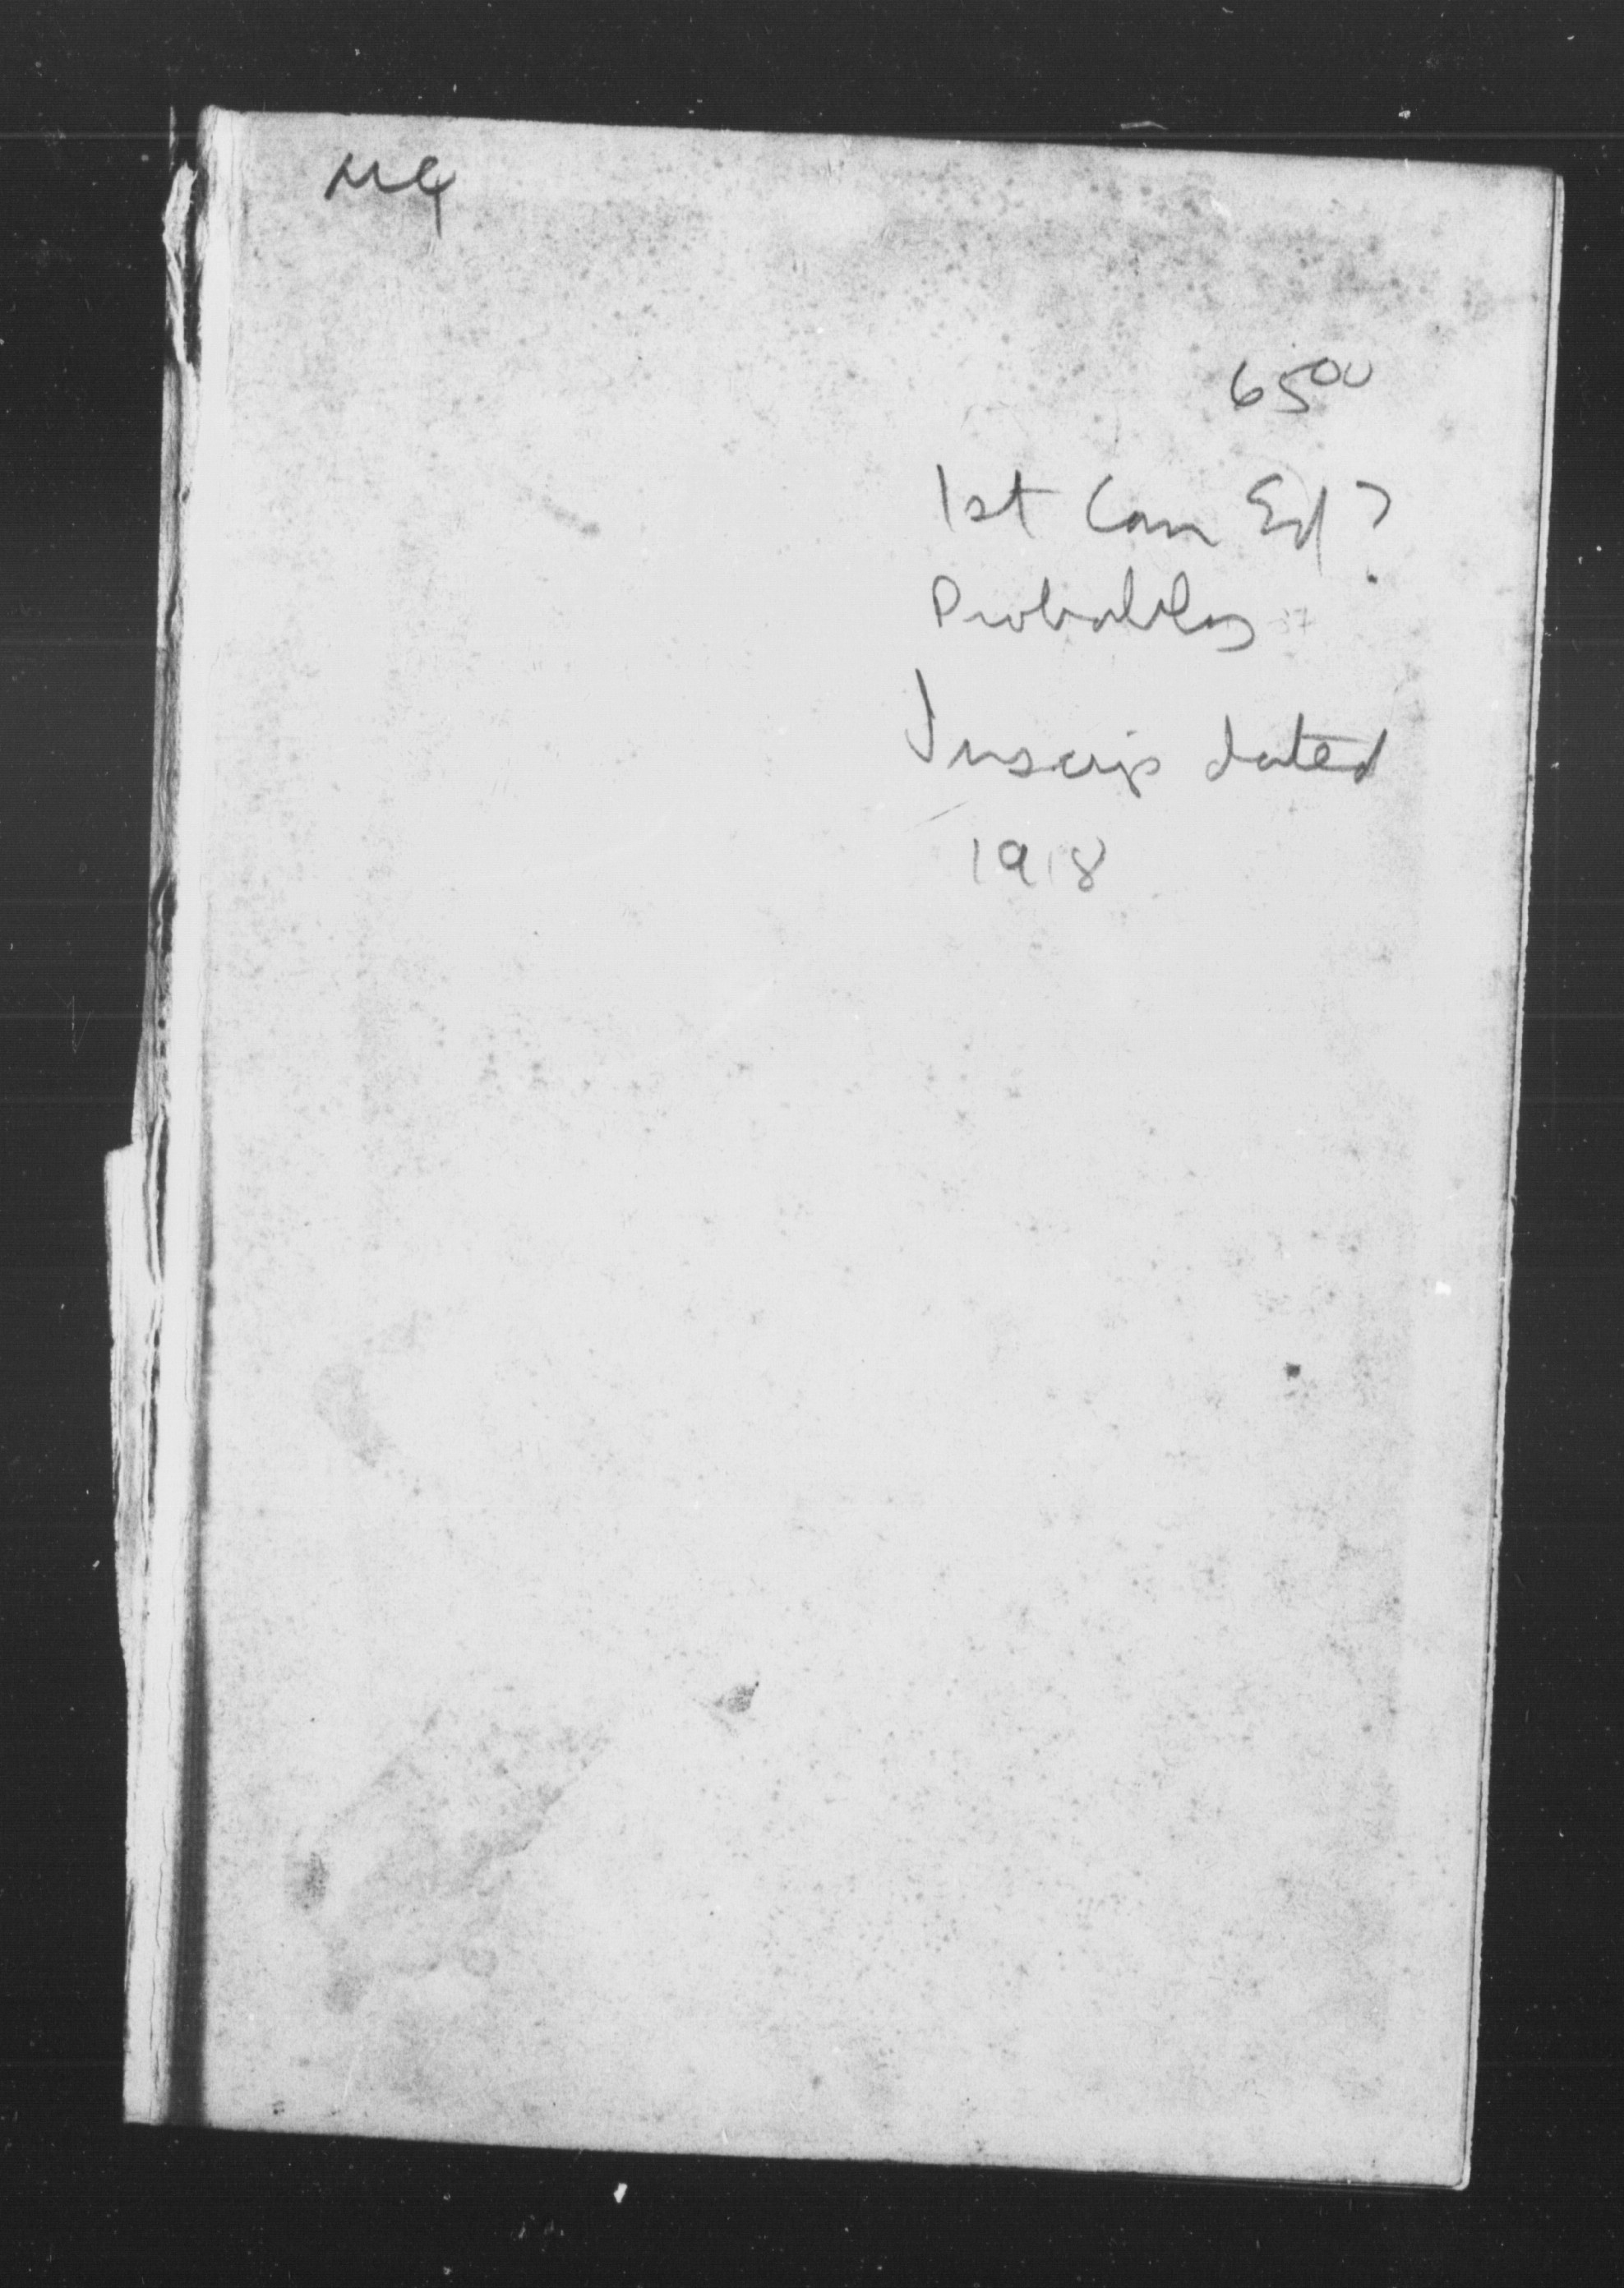 65⁰⁰
1st Can Ed?
Probably
Inscrip dated
1918